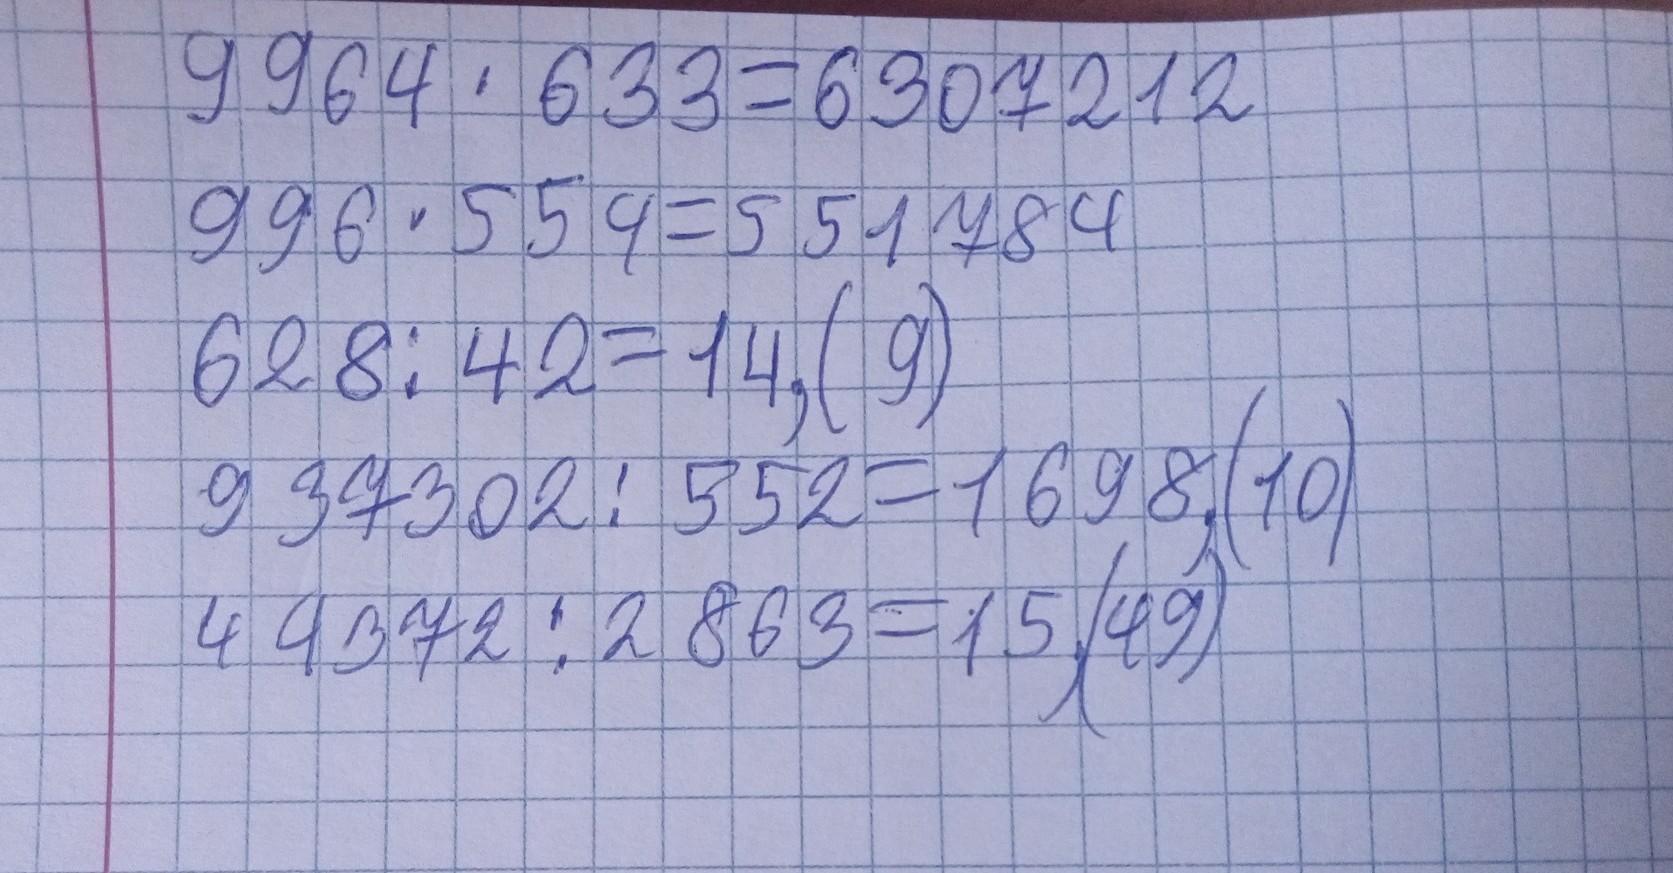 9964 · 633 = 6307212
996 · 554 = 551784
628 : 42 = 14,(9)
937302 : 552 = 1698,(10)
44372 : 2863 = 15,(49)